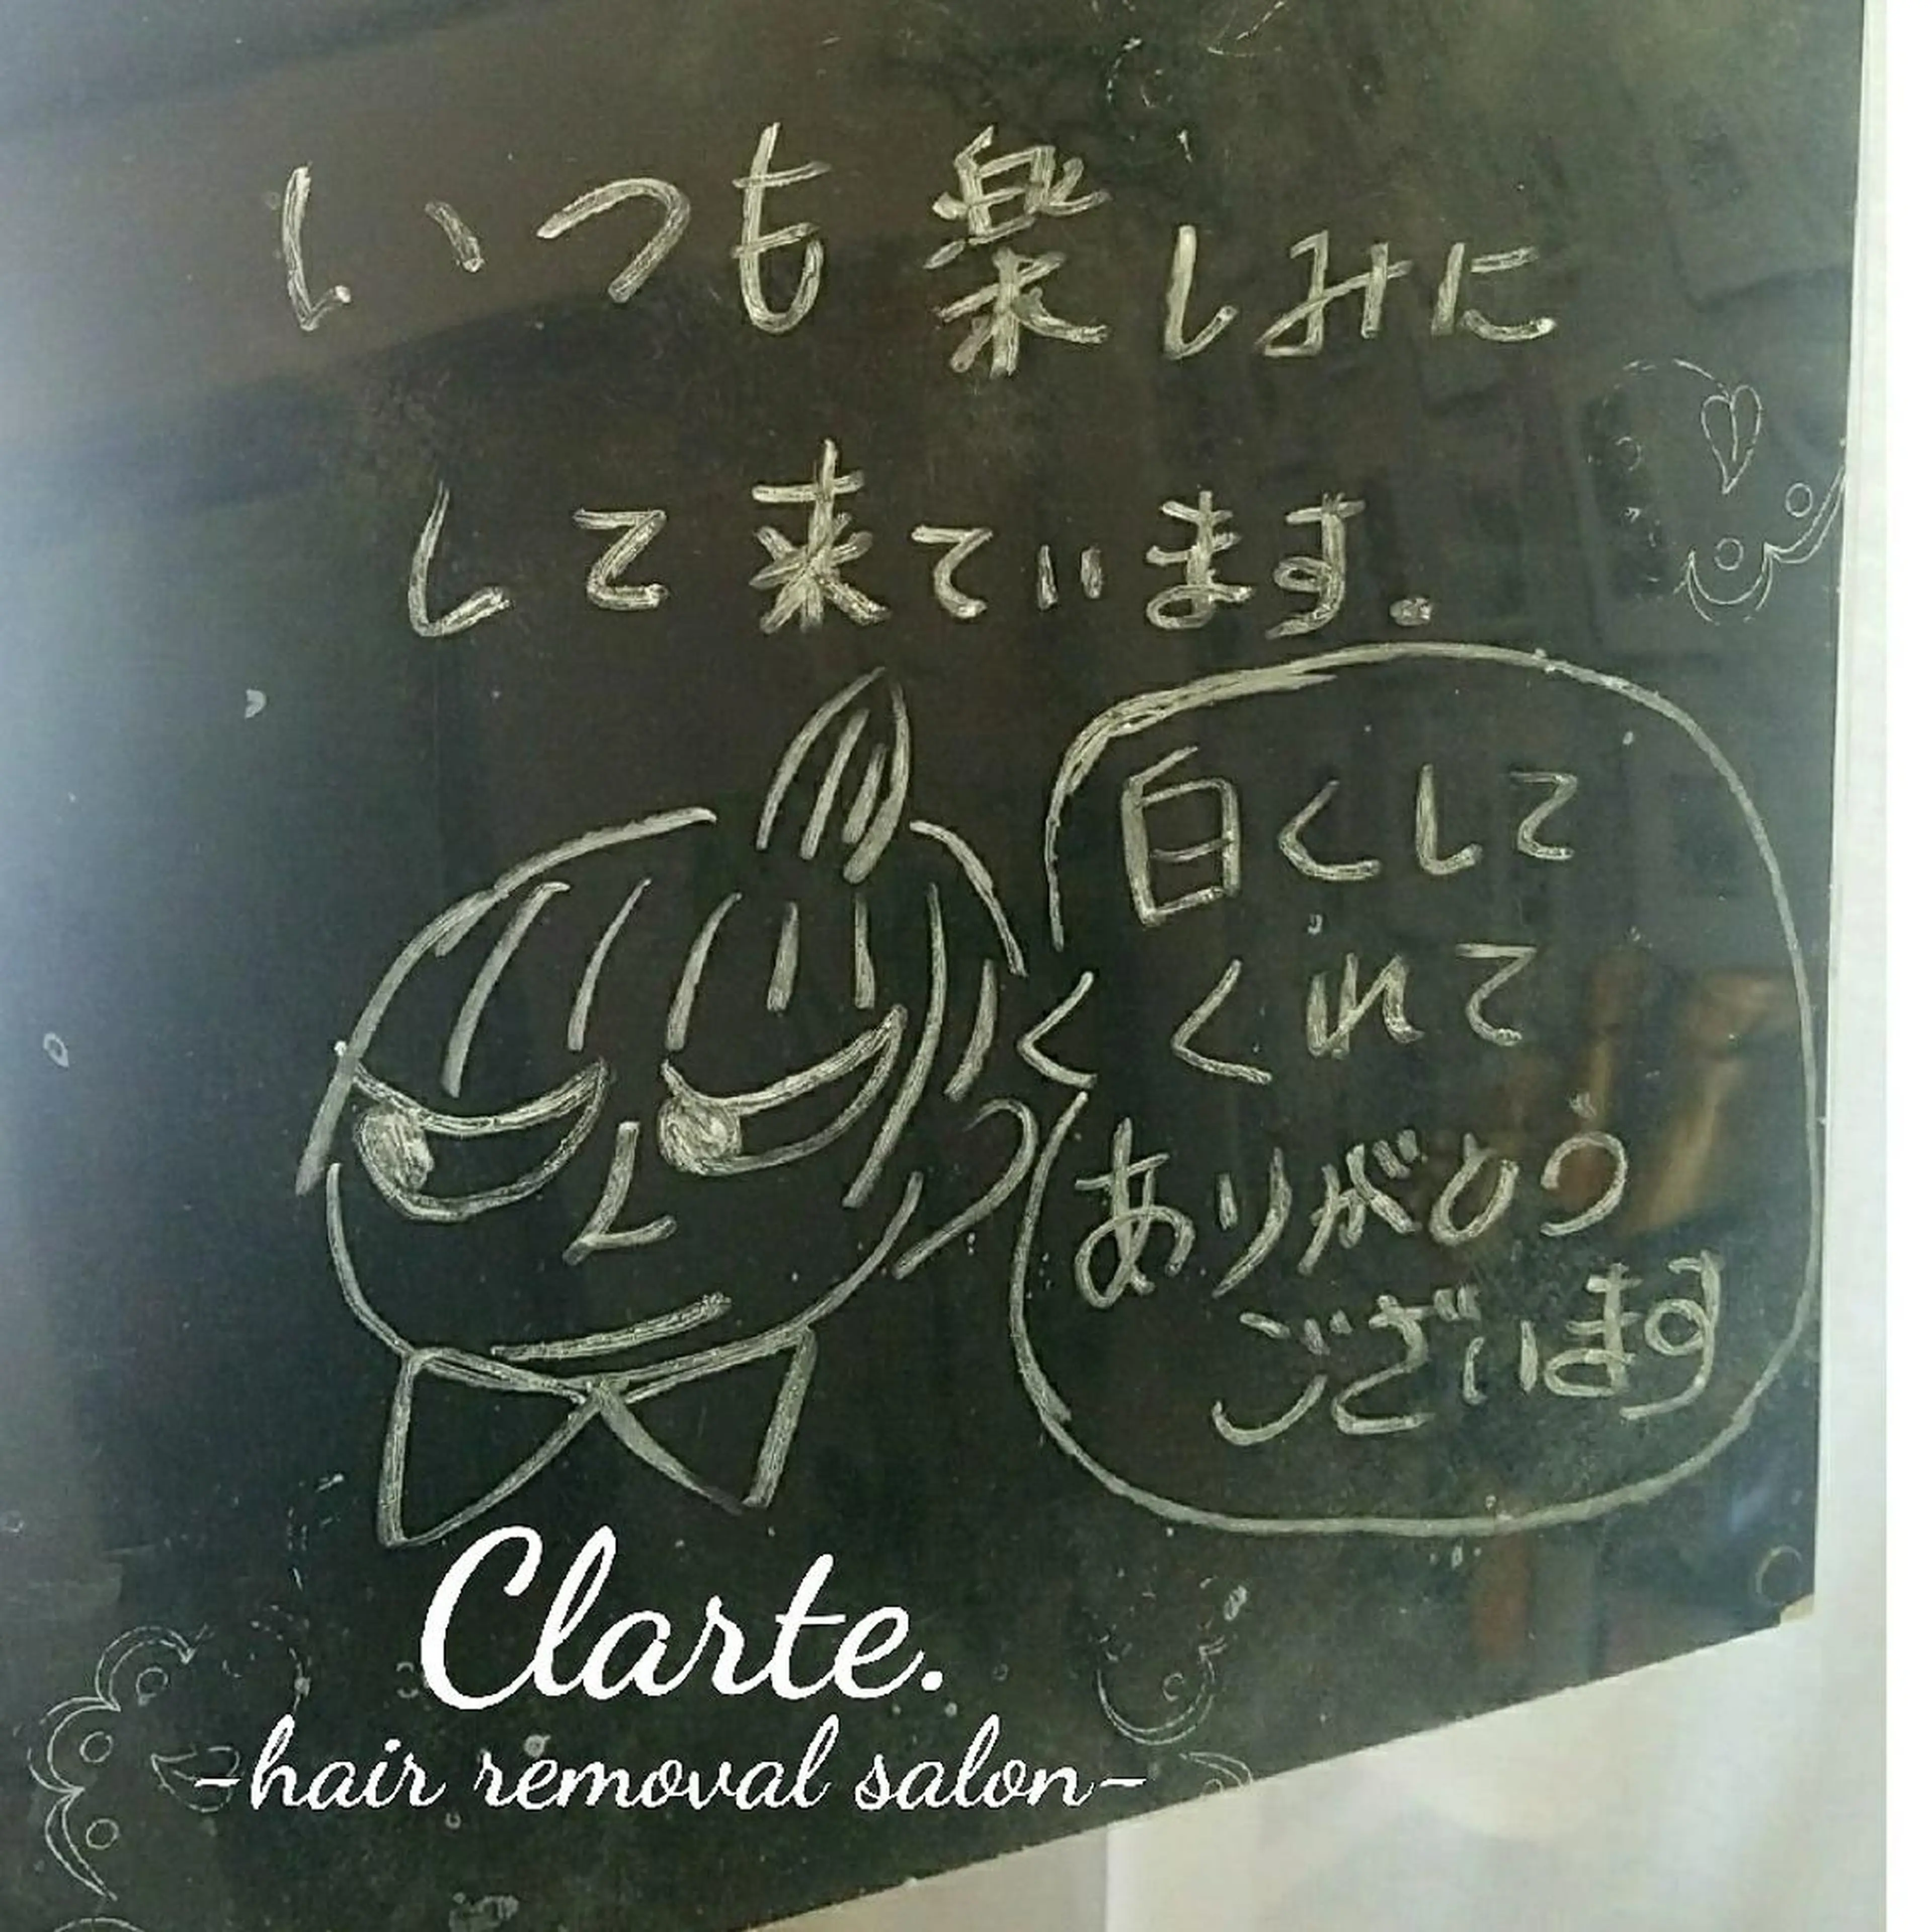 いつも楽しみに
して来ています。
白くして
くれて
ありがとう
ございます
Clarte.
-hair removal salon-